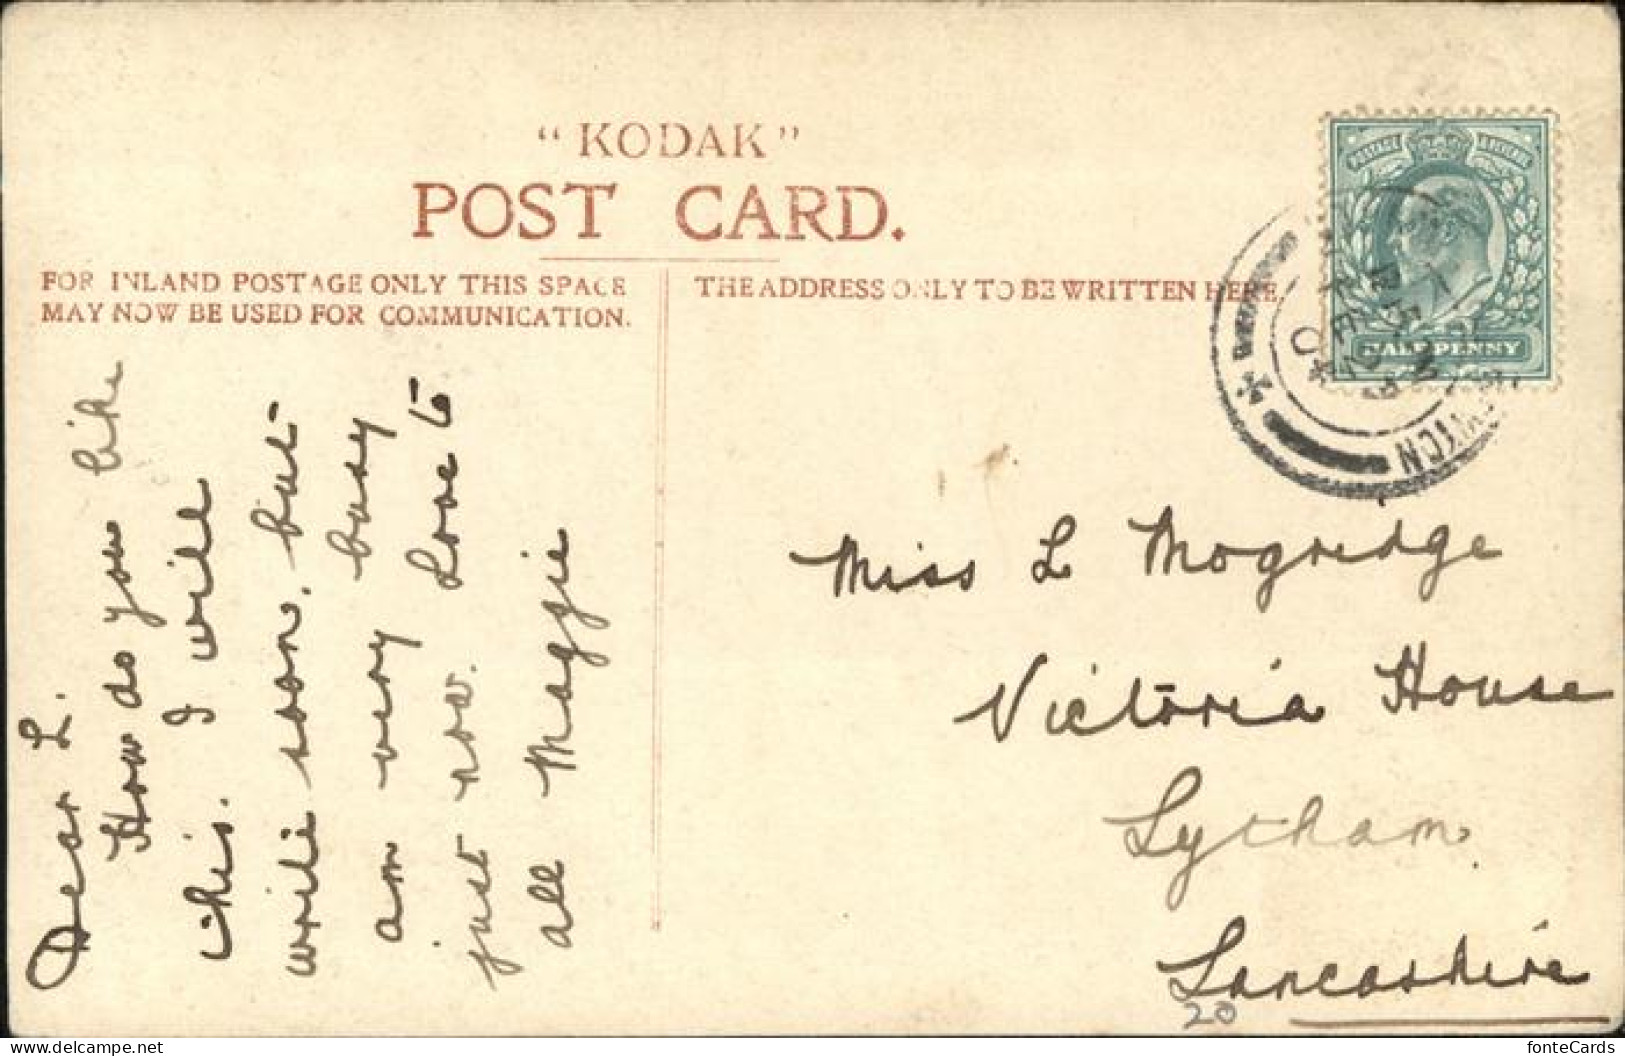 “KODAK”
POST CARD.
FOR INLAND POSTAGE ONLY THIS SPACE
MAY NOW BE USED FOR COMMUNICATION.
THE ADDRESS ONLY TO BE WRITTEN HERE
POSTAGE & REVENUE
HALFPENNY
Dear L.
How do you like
this. I will
write soon, but
am very busy
just now. Love to
all Maggie
Miss L Mogridge
Victoria House
Lytham
Lancashire
20
fonteCards